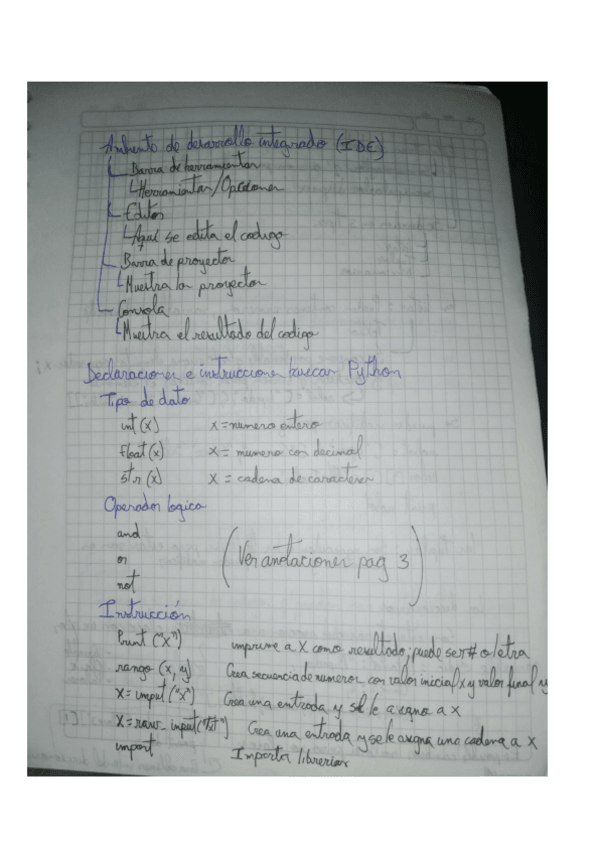 Ambiento de desarrollo integrado (IDE)
Barra de herramientas
Herramientas/Opciones
Editor
Aqui se edita el codigo
Barra de proyectos
Muestra los proyectos
Consola
Muestra el resultado del codigo
Declaraciones e instrucciones basicas Python
Tipo de dato
int (x) x = numero entero
float (x) x = numero con decimal
str (x) x = cadena de caracteres
Operador logica
and
or (Ver anotaciones pag 3)
not
Instrucción
Print ("x") imprime a X como resultado; puede ser # o letra
rango (x, y) Crea secuencia de numeros con valor inicial x y valor final y
X = input ("x") Crea una entrada y se le asigna a x
X = raw_input("txt") Crea una entrada y se le asigna una cadena a x
import Importa librerias